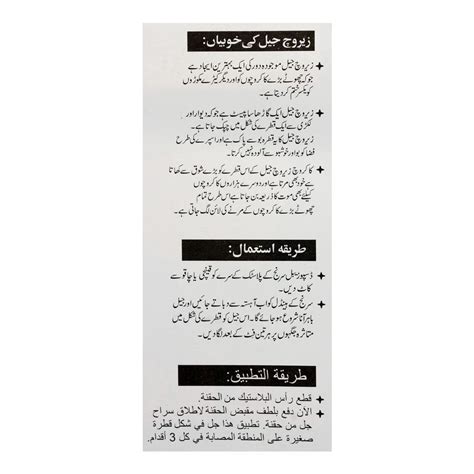 زیروچ جیل کی خوبیاں:
زیروچ جیل موجودہ دور کی ایک بہترین ایجاد ہے
جو کہ چھوٹے بڑے کاکروچوں اور دیگر کیڑے مکوڑوں
کو یکسر ختم کر دیتا ہے۔
زیروچ جیل ایک گاڑھا سا پیسٹ ہے جو کہ دیوار اور
لکڑی سے ایک قطرے کی شکل میں چپک جاتا ہے۔
زیروچ جیل کا یہ قطرہ بو سے پاک ہے اور اسپرے کی طرح
فضا کو بد اور خوشبو سے آلودہ نہیں کرتا۔
کاکروچ زیروچ جیل کے اس قطرے کو بڑے شوق سے کھاتا
ہے خود بھی مرتا ہے اور دوسرے ہزاروں کاکروچوں کے
کیلئے بھی موت کا ذریعہ بن جاتا ہے۔ اس طرح تمام
چھوٹے بڑے کاکروچوں کے مرنے کی لائن لگ جاتی ہے۔
طریقه استعمال:
ڈسپوزیبل سرنج کے پلاسٹک کے سرے کو قینچی یا چاقو سے
کاٹ دیں۔
سرنج کے ہینڈل کو اب آہستہ سے دباتے جائیں اور جیل
باہر آنا شروع ہو جائے گا۔ اس جیل کو قطرے کی شکل میں
متاثرہ جگہوں پر ہر تین فٹ کے بعد لگا دیں۔
طريقة التطبيق:
قطع رأس البلاستيك من الحقنة.
الآن دفع بلطف مقبض الحقنة لاطلاق سراح
جل من حقنة. تطبيق هذا جل في شكل قطرة
صغيرة على المنطقة المصابة في كل 3 أقدام.